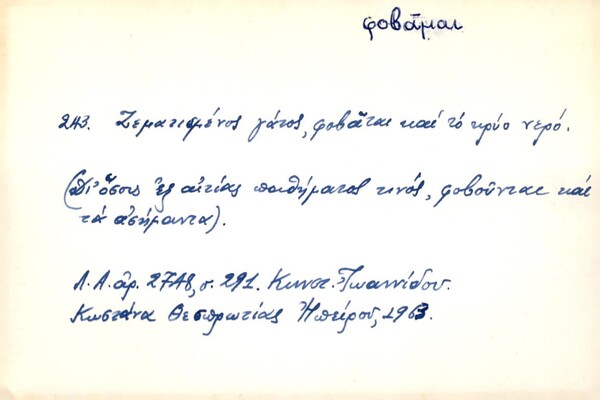 φοβᾶμαι
243. Ζεματισμένος γάτος, φοβᾶται καί τό κρύο νερό.
(Δι' ὅσους ἐξ αἰτίας παθήματος τινός, φοβοῦνται καί
τά ἀσήμαντα).
Λ.Α. ἀρ. 2748, σ. 291. Κωνστ. Ἰωαννίδου.
Κωστάνα Θεσπρωτίας Ἠπείρου, 1963.